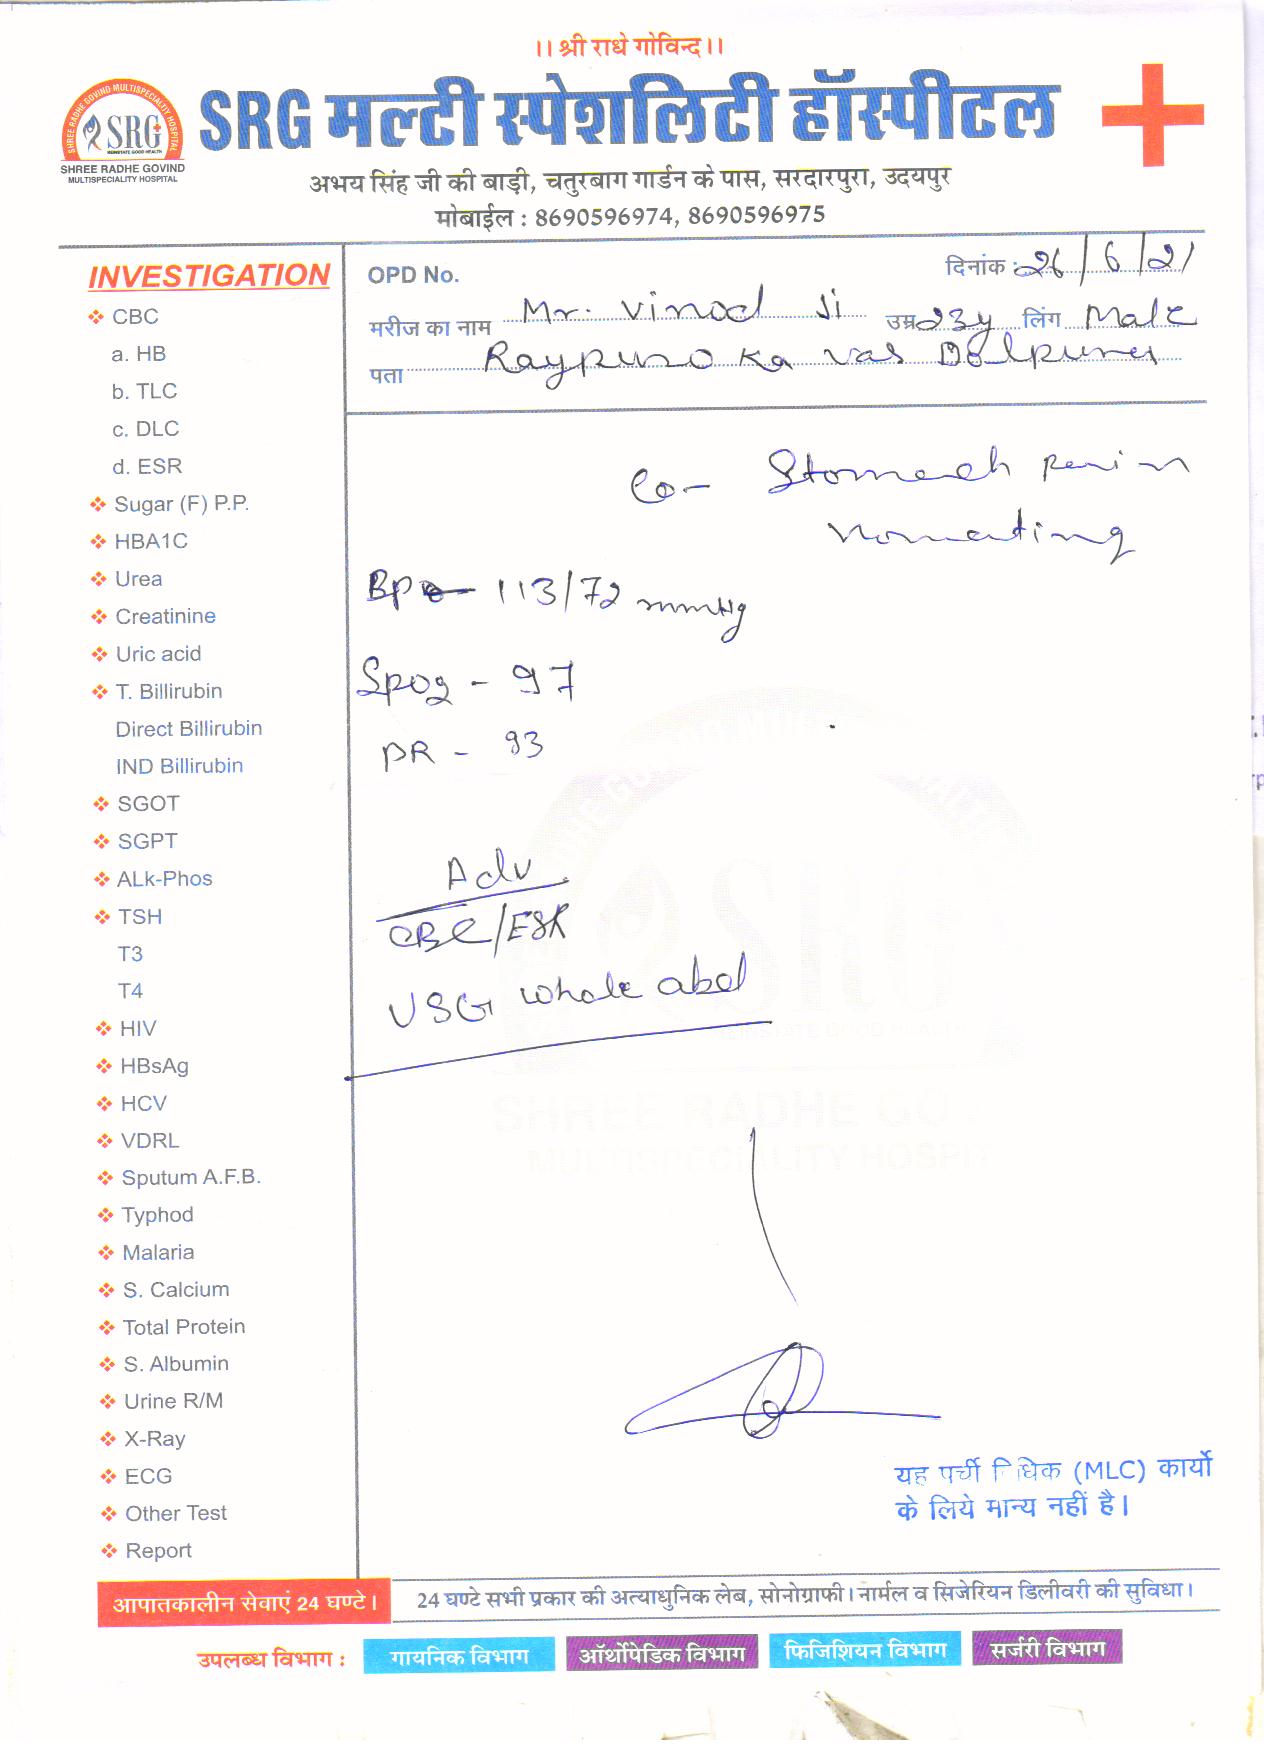 ।। श्री राधे गोविन्द ।।
SHREE RADHE GOVIND MULTISPECIALTIY HOSPITAL
SRG
REINSTATE GOOD HEALTH
SHREE RADHE GOVIND
MULTISPECIALITY HOSPITAL
SRG मल्टी स्पेशलिटी हॉस्पीटल
अभय सिंह जी की बाड़ी, चतुरबाग गार्डन के पास, सरदारपुरा, उदयपुर
मोबाईल : 8690596974, 8690596975
OPD No.
दिनांक : 26/6/21
मरीज का नाम Mr. Vinod Ji उम्र 23y लिंग Male
पता ka vas
INVESTIGATION
CBC
a. HB
b. TLC
c. DLC
d. ESR
Sugar (F) P.P.
HBA1C
Urea
Creatinine
Uric acid
T. Billirubin
Direct Billirubin
IND Billirubin
SGOT
SGPT
ALk-Phos
TSH
T3
T4
HIV
HBsAg
HCV
VDRL
Sputum A.F.B.
Typhod
Malaria
S. Calcium
Total Protein
S. Albumin
Urine R/M
X-Ray
ECG
Other Test
Report
C/o - Stomach pain
Vomating
Bp - 113/72 mmHg
Spo2 - 97
PR - 93
Adv
CBC/ESR
USG whole abd
SHREE RADHE GO
MULTISPECIALITY HOSPIT
यह पर्ची विधिक (MLC) कार्यो
के लिये मान्य नहीं है।
आपातकालीन सेवाएं 24 घण्टे।
24 घण्टे सभी प्रकार की अत्याधुनिक लेब, सोनोग्राफी। नार्मल व सिजेरियन डिलीवरी की सुविधा।
उपलब्ध विभाग : गायनिक विभाग ऑर्थोपेडिक विभाग फिजिशियन विभाग सर्जरी विभाग